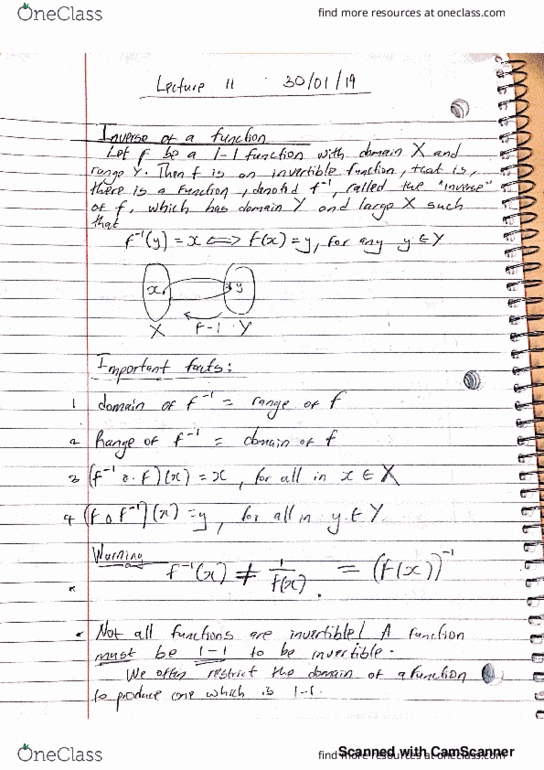 OneClass
find more resources at oneclass.com
Lecture 11 30/01/19
Inverse of a function
Let f be a 1-1 function with domain X and
range Y. Then f is an invertible function, that is,
there is a function, denoted f⁻¹, called the "inverse"
of f, which has domain Y and large X such
that
f⁻¹(y) = x ⟺ f(x) = y, for any y ∈ Y
x y
X f-1 Y
Important facts:
1 domain of f⁻¹ = range of f
2 Range of f⁻¹ = domain of f
3 (f⁻¹ o f)(x) = x, for all in x ∈ X
4 (f o f⁻¹)(x) = y, for all in y ∈ Y
Warning
f⁻¹(x) ≠ 1/f(x) . = (f(x))⁻¹
• Not all functions are invertible! A function
must be 1-1 to be invertible.
We often restrict the domain of a function
to produce one which is 1-1.
OneClass
find more resources at oneclass.com
Scanned with CamScanner